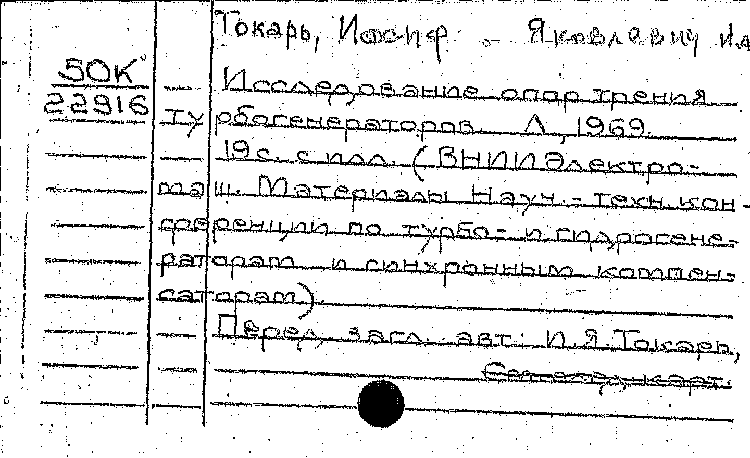 Токарь, Иосиф Яковлевич и др
50К
22916
Исследование опор трения
турбогенераторов. Л, 1969.
19с. с илл. (ВНИИЭлектро-
маш. Материалы Науч.-техн. кон-
ференции по турбо- и гидрогене-
раторам и синхронным компен-
саторам).
Перед загл. авт: И.Я.Токарь,